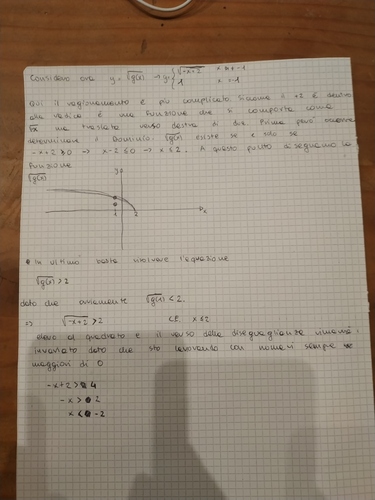 Considero ora y = √g(x) → y = { √-x+2 x ≠ -1
1 x = -1
Qui il ragionamento è più complicato. Siccome il +2 è dentro
alla radice è una funzione che si comporta come
√x ma traslata verso destra di due. Prima però occorre
determinare il Dominio. √g(x) esiste se e solo se
-x+2 ≥ 0 → x-2 ≤ 0 → x ≤ 2. A questo punto disegnamo la
funzione
√g(x)
y
2
x
In ultimo basta risolvere l'equazione
√g(x) > 2
dato che ovviamente √g(x) < 2.
⇒ √-x+2 > 2 C.E. x ≤ 2
elevo al quadrato e il verso della diseguaglianza rimane
invariato dato che sto lavorando con numeri sempre
maggiori di 0
-x+2 > 4
-x > 2
x < -2